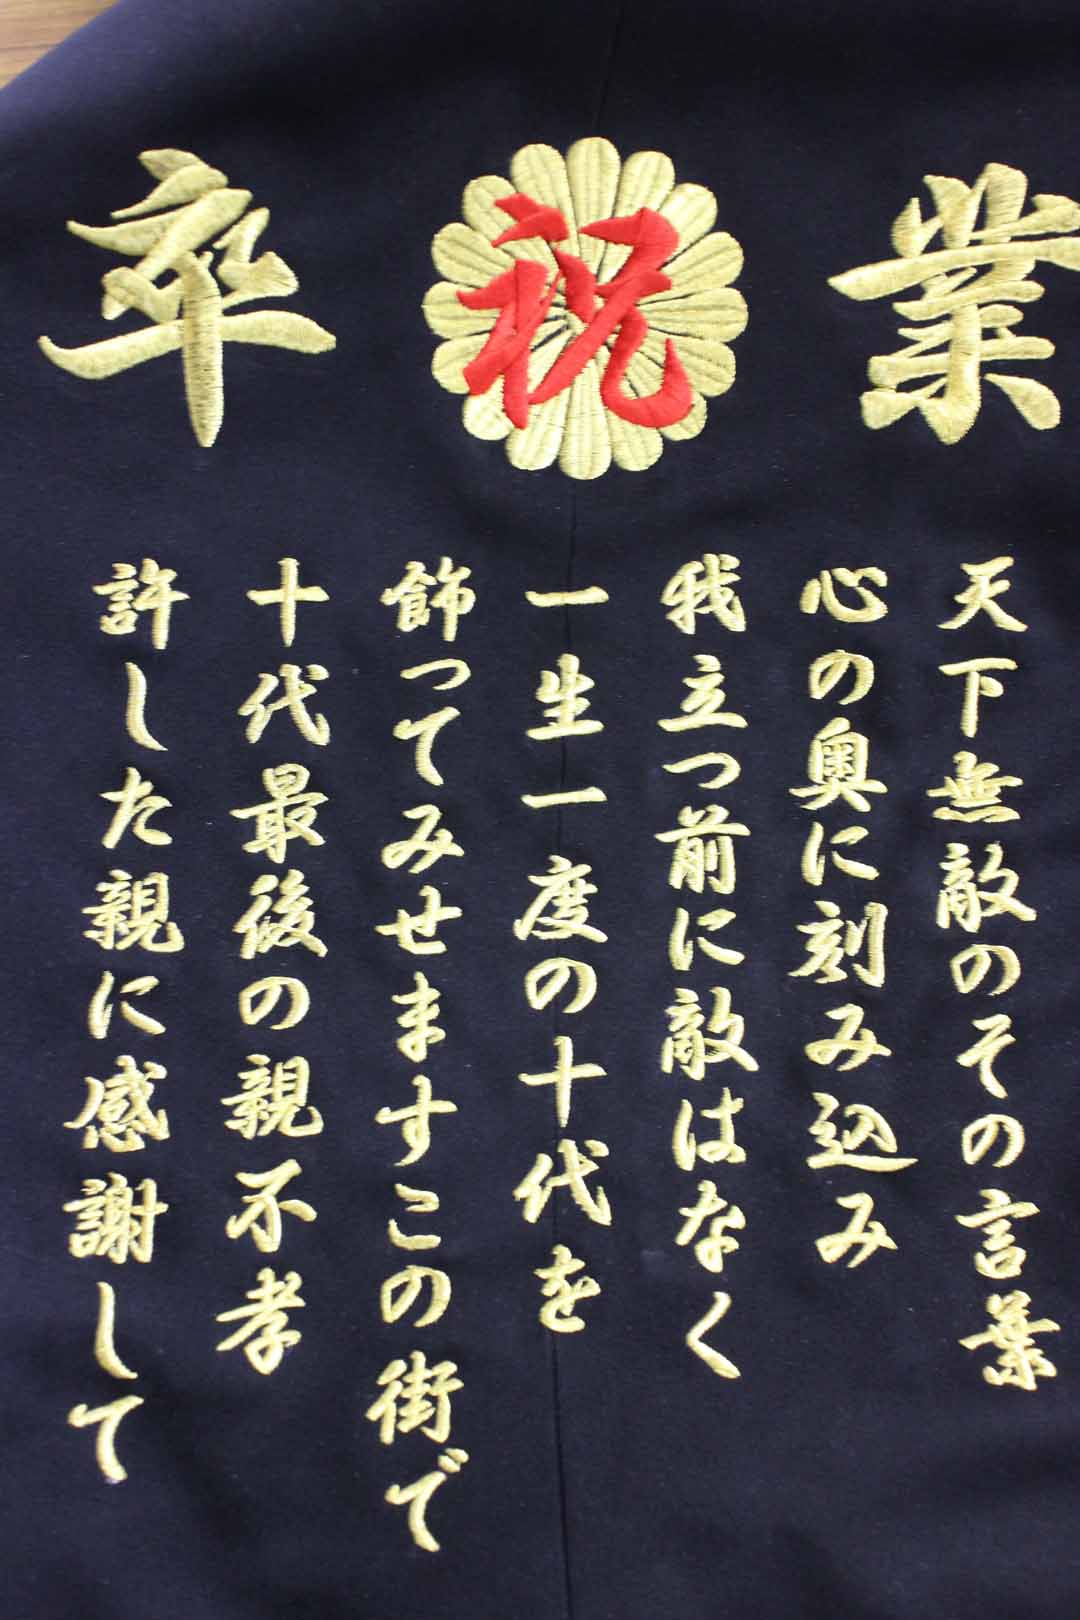 卒 祝 業
天下無敵のその言葉
心の奥に刻み込み
我立つ前に敵はなく
一生一度の十代を
飾ってみせますこの街で
十代最後の親不孝
許した親に感謝して